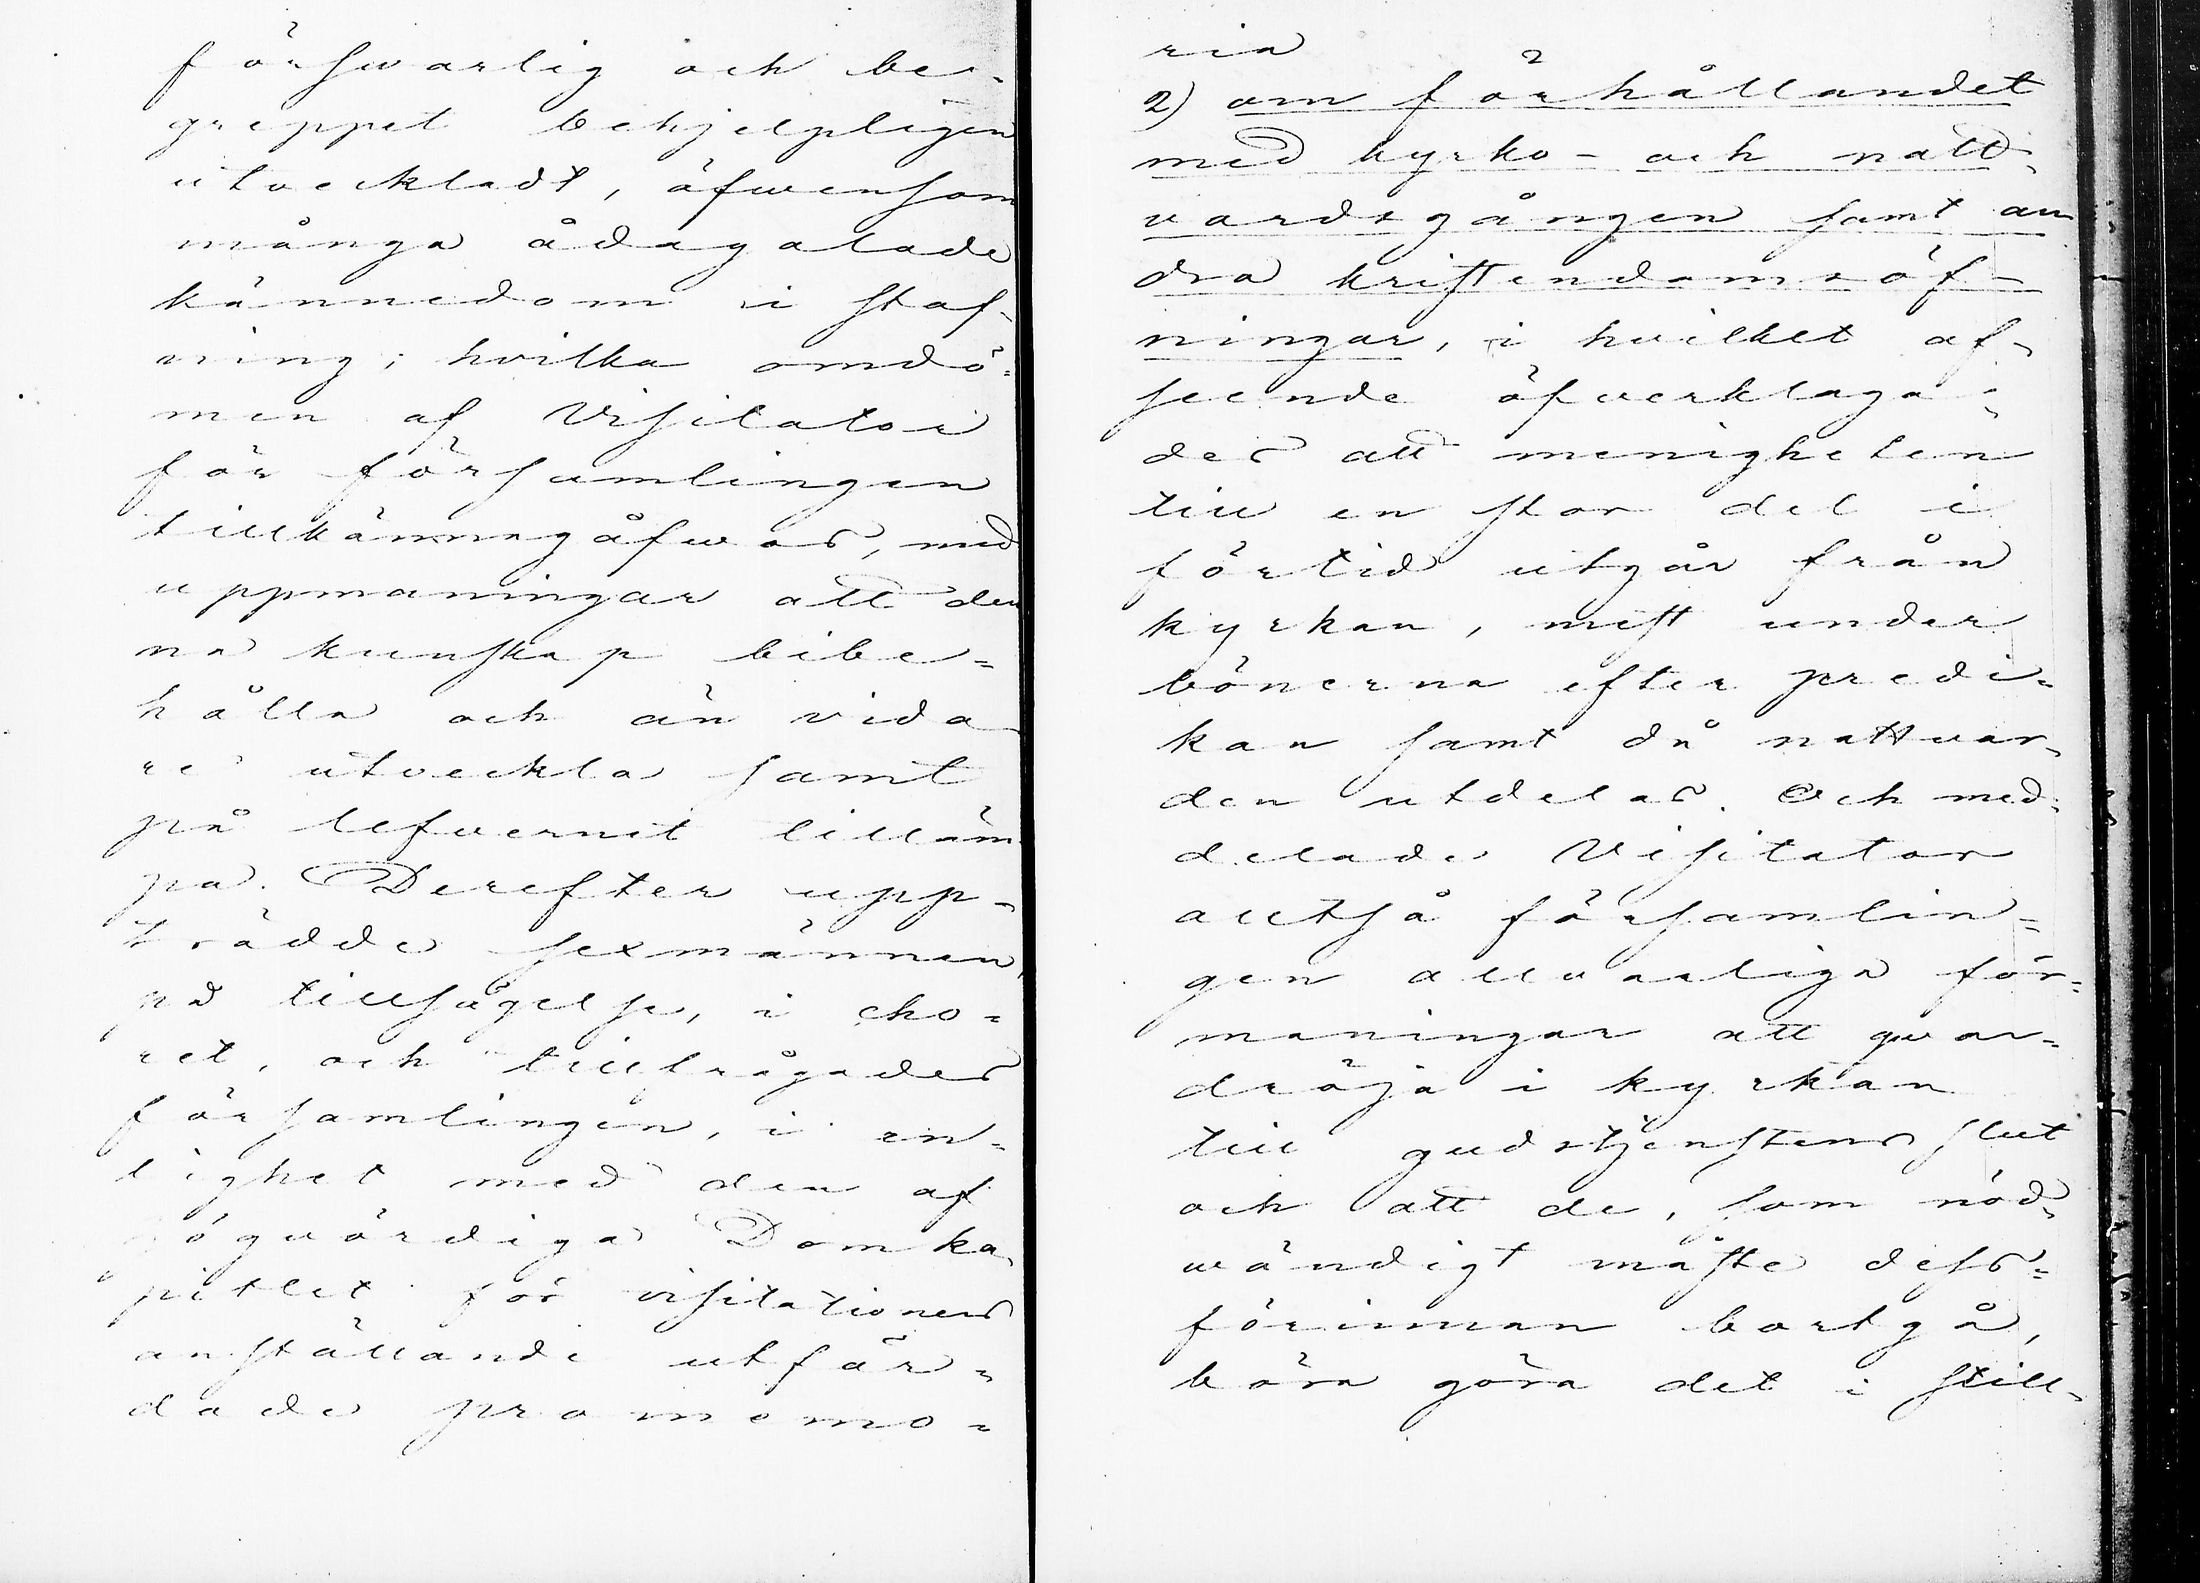 förswarlig och be-
greppet behjelpligen
utveckladt, äfwensom
många ådagalade
kännedom i staf-
ning; hvilka omdö-
men af Visitator
för församlingen
tillkännagåfwos, med
uppmaningar att den
na kunskap bibe-
hålla och än vida
re utveckla samt
på lefwernet tilläm
pa. Derefter upp-
trädde sexmännen,
på tillsägelse, i cho-
ret, och tillfrågades
församlingen, i en-
lighet med den af
Högvördiga Domka
pitlet för visitationens
anställande utfär-
dade promemo-
ria
2) om förhållandet
med kyrko- och natt-
vardsgången samt an
dra kristendomsöf-
ningar, i hvilket af-
seende öfverklaga-
des att menigheten
till en stor del i
förtid utgår från
kyrkan, mest under
bönerna efter predi-
kan samt då nattvar-
den utdelas. Och med-
delade Visitator
alltså församlin-
gen allvarliga för-
maningar att qvar-
dröja i kyrkan
till gudstjenstens slut
och att de, som nöd-
wändigt måste dess-
förinnan bortgå,
böra göra det i still-